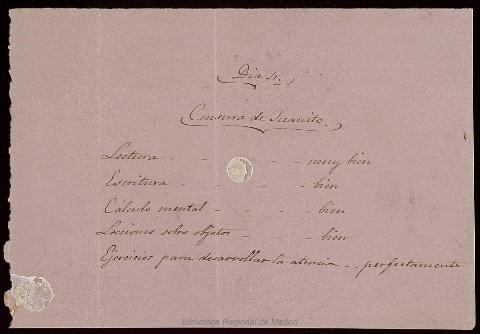 Dia 4.
Censura de Juanito.
Lectura - - - - - muy bien
Escritura - - - - bien
Cálculo mental - - - - bien
Lecciones sobre objetos - - - - bien
Ejercicios para desarrollar la atencion - - perfectamente
Biblioteca Regional de Madrid